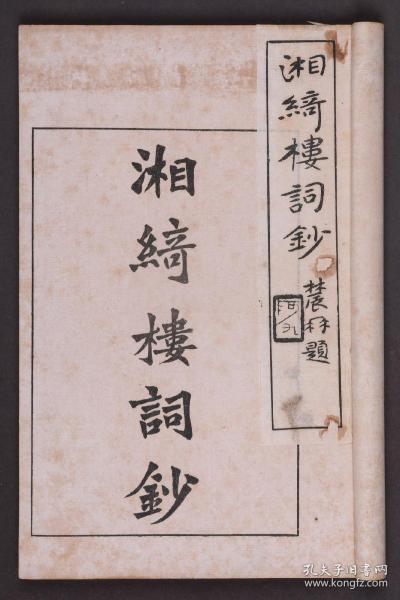 湘綺樓詞鈔
題
湘綺樓詞鈔
孔夫子旧书网
www.kongfz.com